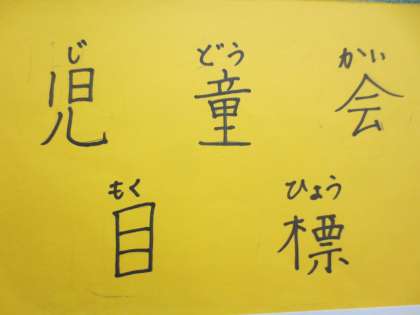 じ どう かい
児 童 会
もく ひょう
目 標